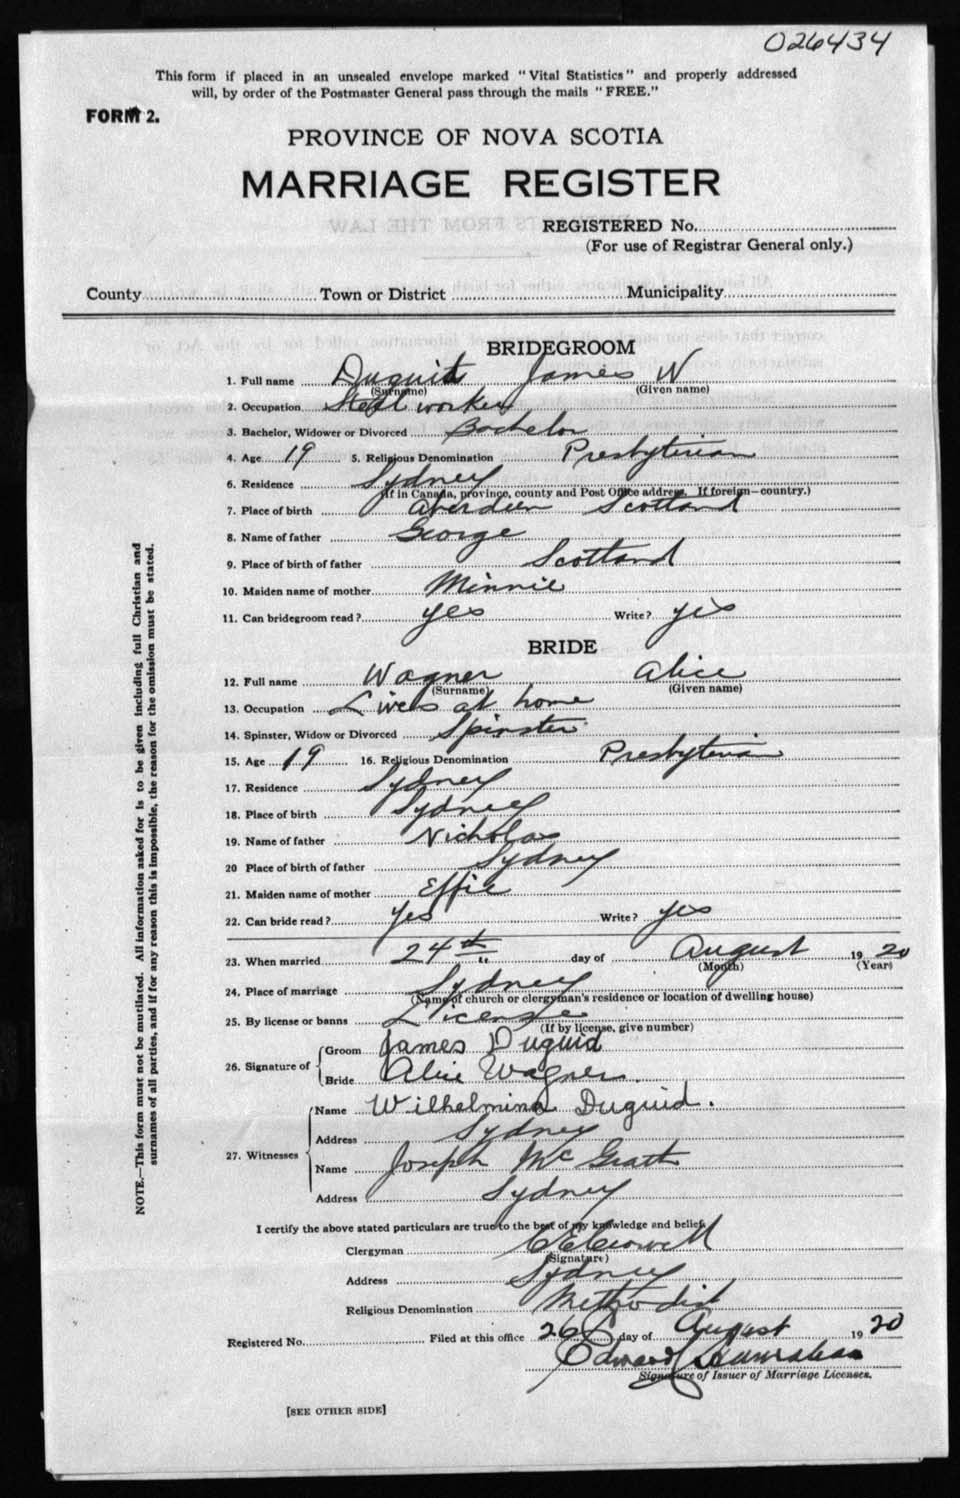 026434
This form if placed in an unsealed envelope marked "Vital Statistics" and properly addressed
will, by order of the Postmaster General pass through the mails "FREE."
FORM 2.
PROVINCE OF NOVA SCOTIA
MARRIAGE REGISTER
REGISTERED No.
(For use of Registrar General only.)
County Town or District Municipality
BRIDEGROOM
1. Full name Duguid James W
(Surname) (Given name)
2. Occupation Steel worker
3. Bachelor, Widower or Divorced Bachelor
4. Age 19 5. Religious Denomination Presbyterian
6. Residence Sydney
(If in Canada, province, county and Post Office address. If foreign—country.)
7. Place of birth Aberdeen Scotland
8. Name of father George
9. Place of birth of father Scotland
10. Maiden name of mother Minnie
11. Can bridegroom read? yes Write? yes
BRIDE
12. Full name Wagner Alice
(Surname) (Given name)
13. Occupation Lives at home
14. Spinster, Widow or Divorced Spinster
15. Age 19 16. Religious Denomination Presbyterian
17. Residence Sydney
18. Place of birth Sydney
19. Name of father Nicholas
20 Place of birth of father Sydney
21. Maiden name of mother Effie
22. Can bride read? yes Write? yes
23. When married 24th day of August 1920
(Month) (Year)
24. Place of marriage Sydney
(Name of church or clergyman's residence or location of dwelling house)
25. By license or banns License
(If by license, give number)
26. Signature of
Groom James Duguid
Bride Alice Wagner.
27. Witnesses
Name Wilhelmina Duguid.
Address Sydney
Name Joseph McGrath
Address Sydney
I certify the above stated particulars are true to the best of my knowledge and belief.
Clergyman C E Crowell
(Signature)
Address Sydney
Religious Denomination Methodist
Registered No. Filed at this office 26 day of August 1920
Edward
Signature of Issuer of Marriage Licenses.
[SEE OTHER SIDE]
NOTE.—This form must not be mutilated. All information asked for is to be given including full Christian and
surnames of all parties, and if for any reason this is impossible, the reason for the omission must be stated.